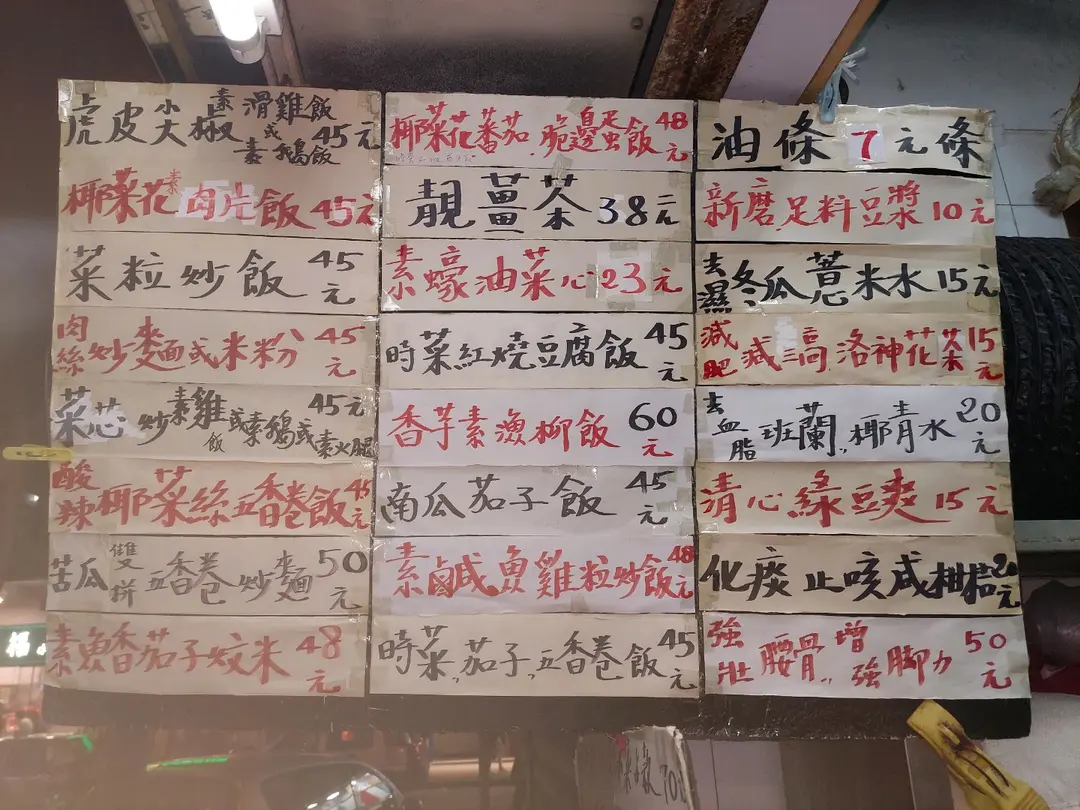 虎皮尖椒素滑雞飯或素鵝飯 45元
椰菜花素肉片飯 45元
菜粒炒飯 45元
肉絲炒麵或米粉 45元
菜芯炒素雞飯或素鵝或素火腿 45元
酸辣椰菜絲五香卷飯 45元
苦瓜雙拼五香卷炒麵 50元
素魚香茄子炆米 48元
椰菜花番茄 飯 48元
靚薑茶 38元
素蠔油菜心 23元
時菜紅燒豆腐飯 45元
香芋素漁柳飯 60元
南瓜茄子飯 45元
素鹹魚雞粒炒飯 48元
時菜,茄子,五香卷飯 45元
油條 7元條
新磨足料豆漿 10元
去濕冬瓜薏米水 15元
減肥減三高洛神花茶 15元
去血脂班蘭,椰青水 20元
清心綠豆爽 15元
化痰止咳咸柑桔 20元
強壯腰骨,增強脚力 50元